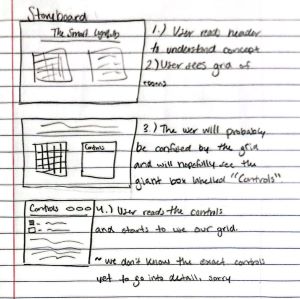 Storyboard
The Smart
1.) User read header
to understand concept
2) User sees grid of
rooms
Controls
3.) The user will probably
be confused by the grid
and will hopefully see the
giant box labelled "Controls"
Controls
4.) User reads the controls
and starts to use our grid.
~ we don't know the exact controls
yet to go into detail, sorry